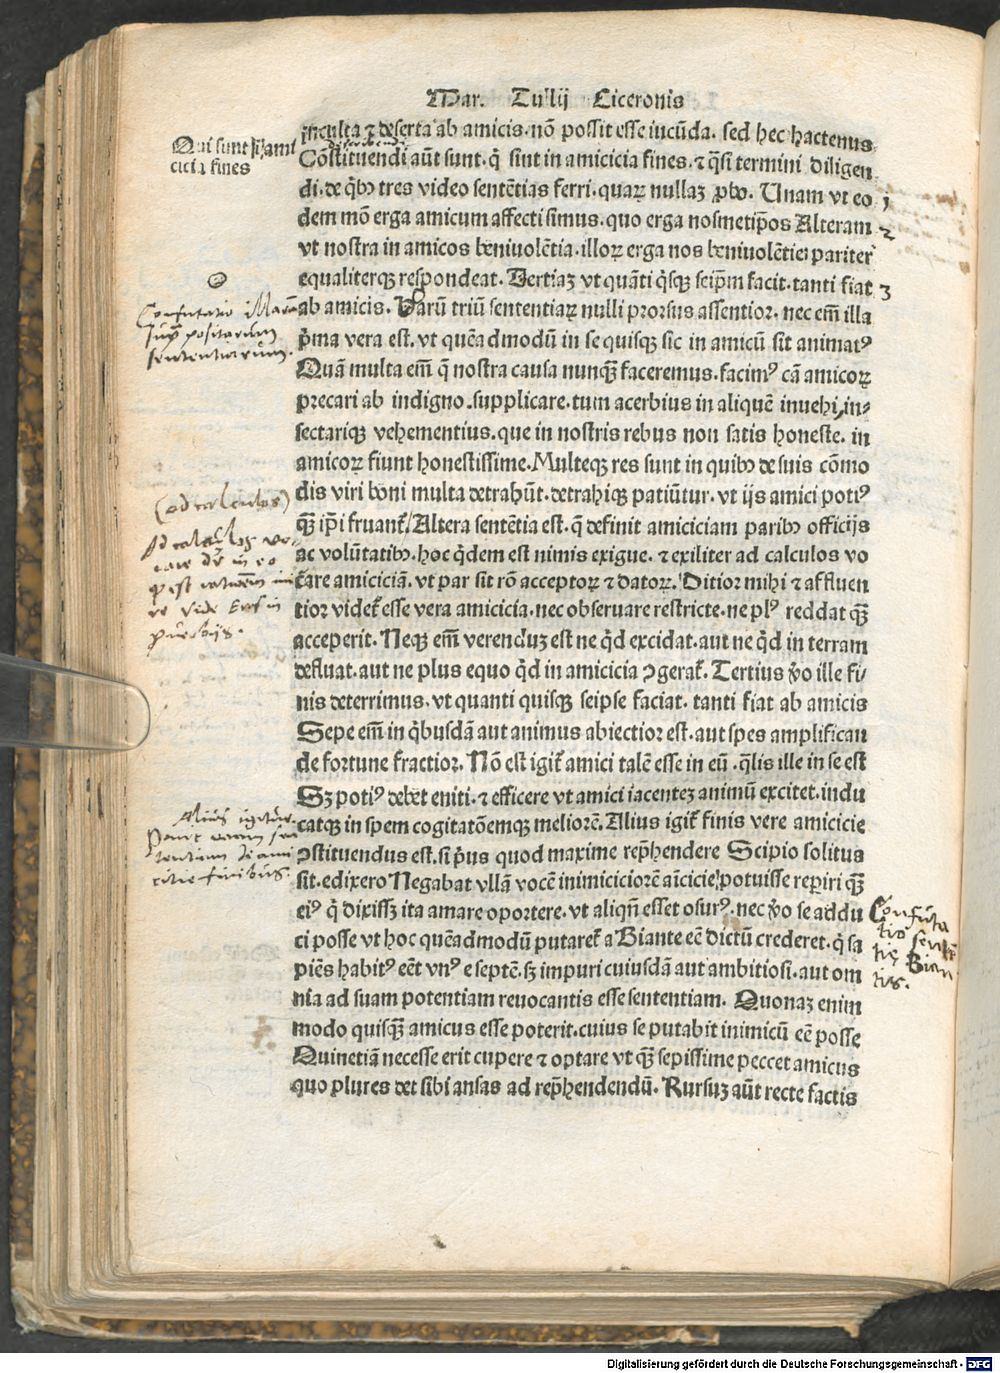 Mar. Tullij Ciceronis
inculta ⁊ deserta ab amicis. nõ possit esse iucũda. sed hec hactenus.
Qui sunt in ami
cicia fines
Cõstituendi aũt sunt. q̇ sint in amicicia fines. ⁊ q̃si termini diligen
di. de q̇bꝰ tres video sentẽtias ferri. quaꝝ nullaꝫ ꝓbo. Unam vt eo
1
dem mõ erga amicum affecti simus. quo erga nosmetip̃os Alteram
2
vt nostra in amicos beniuolẽtia. illoꝝ erga nos beniuolẽtie pariter
equaliterqꝫ respondeat. Tertiaꝫ vt quãti q̇sqꝫ seip̃m facit. tanti fiat
3
Confutatio illarũ
supra positarum
sententiarum.
ab amicis. Harũ triũ sententiaꝝ nulli prorsus assentior. nec em̃ illa
p̃ma vera est. vt quẽadmodũ in se quisqꝫ sic in amicũ sit animatꝰ
Quã multa em̃ q̃ nostra causa nunqꝫ̃ faceremus. facimꝰ cã amicoꝝ
precari ab indigno. supplicare. tum acerbius in aliquẽ inuehi, in⸗
sectariqꝫ vehementius. que in nostris rebus non satis honeste. in
amicoꝝ fiunt honestissime. Multeqꝫ res sunt in quibꝰ de suis cõmo
dis viri boni multa detrahũt. detrahiqꝫ patiũtur. vt ijs amici potiꝰ
(ad calculos)
qꝫ̃ ip̃i fruant᷑ / Altera sentẽtia est. q̃ definit amiciciam paribꝰ officijs
Ad calculos vo⸗
care dr̃ in eo
q est rationem ini
re vide Eras in
prouerbijs.
ac volũtatibꝰ. hoc q̇dem est nimis exigue. ⁊ exiliter ad calculos vo
care amiciciã. vt par sit rõ acceptoꝝ ⁊ datoꝝ. Ditior mihi ⁊ affluen
tior videt᷑ esse vera amicicia. nec obseruare restricte. ne plꝰ reddat qꝫ̃
acceperit. Neqꝫ em̃ verenduꝫ est ne q̇d excidat. aut ne q̇d in terram
defluat. aut ne plus equo q̇d in amicicia ꝯgerat᷑. Tertius ꝟo ille fi⸗
nis deterrimus. vt quanti quisqꝫ seipse faciat. tanti fiat ab amicis
Sepe em̃ in q̇busdã aut animus abiectior est. aut spes amplifican
de fortune fractior. Nõ est igit᷑ amici talẽ esse in eũ. q̃lis ille in se est
Sꝫ potiꝰ debet eniti. ⁊ efficere vt amici iacenteꝫ animũ excitet. indu
Alius igitur.
Ponit veram sen
tentiam de ami
citie finibus.
catqꝫ in spem cogitatõemqꝫ meliorẽ. Alius igit᷑ finis vere amicicie
ꝯstituendus est. si p̃us quod maxime rep̃hendere Scipio solitus
sit. edixero Negabat vllã vocẽ inimiciciorẽ aı̃cicie potuisse reperiri qꝫ̃
eiꝰ q̇ dixissꝫ ita amare oportere. vt aliqñ esset osurꝰ. nec ꝟo se addu
Confuta
tio senten
tie Bian
tis.
ci posse vt hoc quẽadmodũ putaret᷑ a Biante eẽ dictũ crederet. q̇ sa
piẽs habitꝰ eẽt vnꝰ e septẽ. sꝫ impuri cuiusdã aut ambitiosi. aut om
nia ad suam potentiam reuocantis esse sententiam. Quonaꝫ enim
modo quisqꝫ̃ amicus esse poterit. cuius se putabit inimicũ eẽ posse
Quinetiã necesse erit cupere ⁊ optare vt qꝫ̃ sepissime peccet amicus
quo plures det sibi ansas ad rep̃hendendũ. Rursuꝫ aũt recte factis
Digitalisierung gefördert durch die Deutsche Forschungsgemeinschaft - DFG